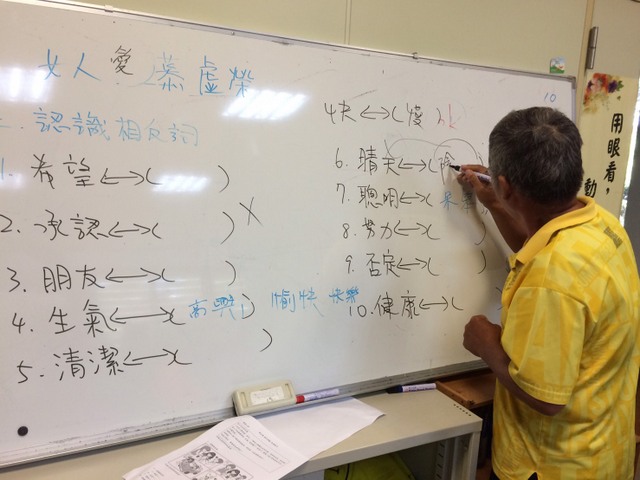 女人愛慕虛榮
一. 認識相反詞
1. 希望<-->( )
2. 承認<-->( )X
3. 朋友<-->( )
4. 生氣<-->( 高興) 愉快 快樂
5. 清潔<-->( )
快<-->(慢)
6. 晴天<-->(
7. 聰明<-->(
8. 努力<-->( )
9. 否定<-->( )
10. 健康<-->( )
10
用眼看,
動